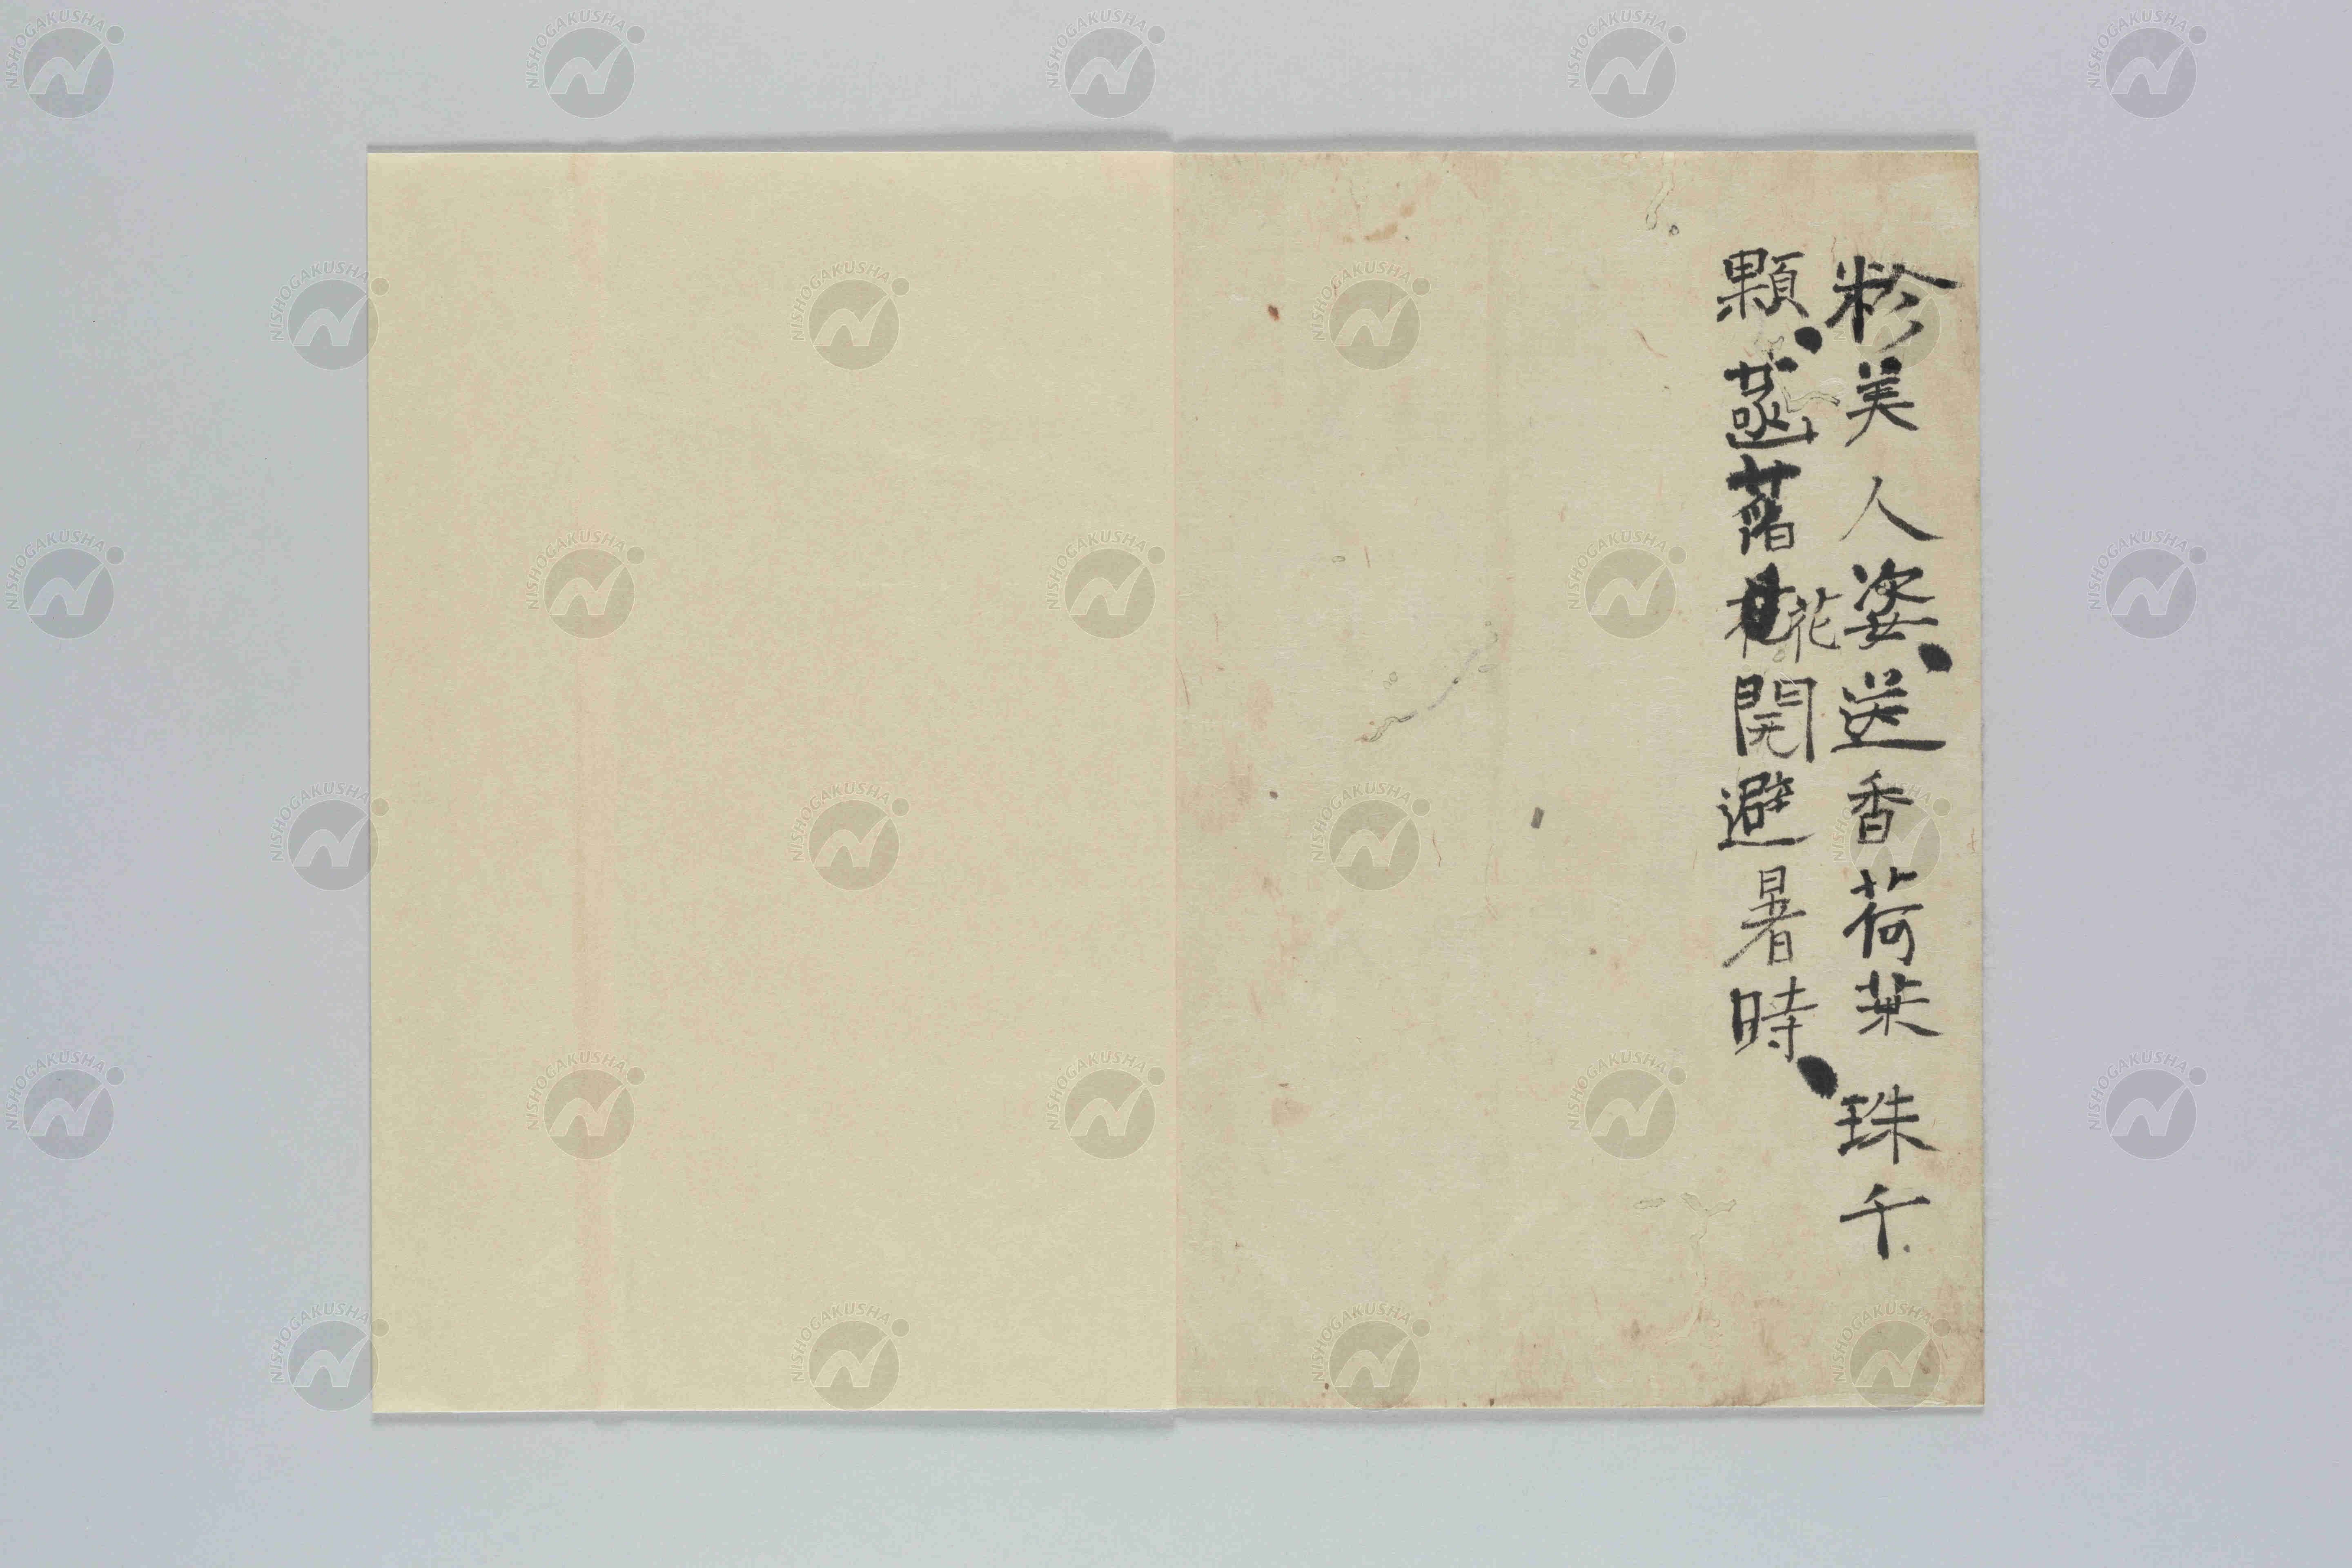 粉美人姿送香荷葉珠千
顆菡萏花開避暑時
NISHOGAKUSHA